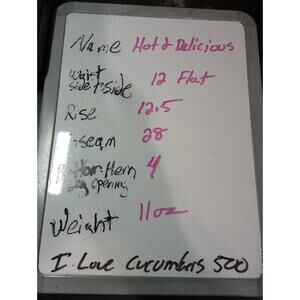 Name Hot & Delicious
Waist side to side 12 Flat
Rise 12.5
Inseam 28
Bottom Hem Leg opening 4
Weight 11oz
I Love Cucumbers 500